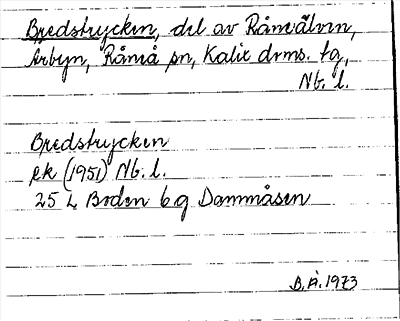 Bredstrycken, del av Råneälven,
Årbyn, Råneå sn, Kalix dvms. tg,
Nb. l.
Bredstrycken
ek (1951) Nb. l.
25 L Boden 6 g Dammåsen
B. Å. 1973